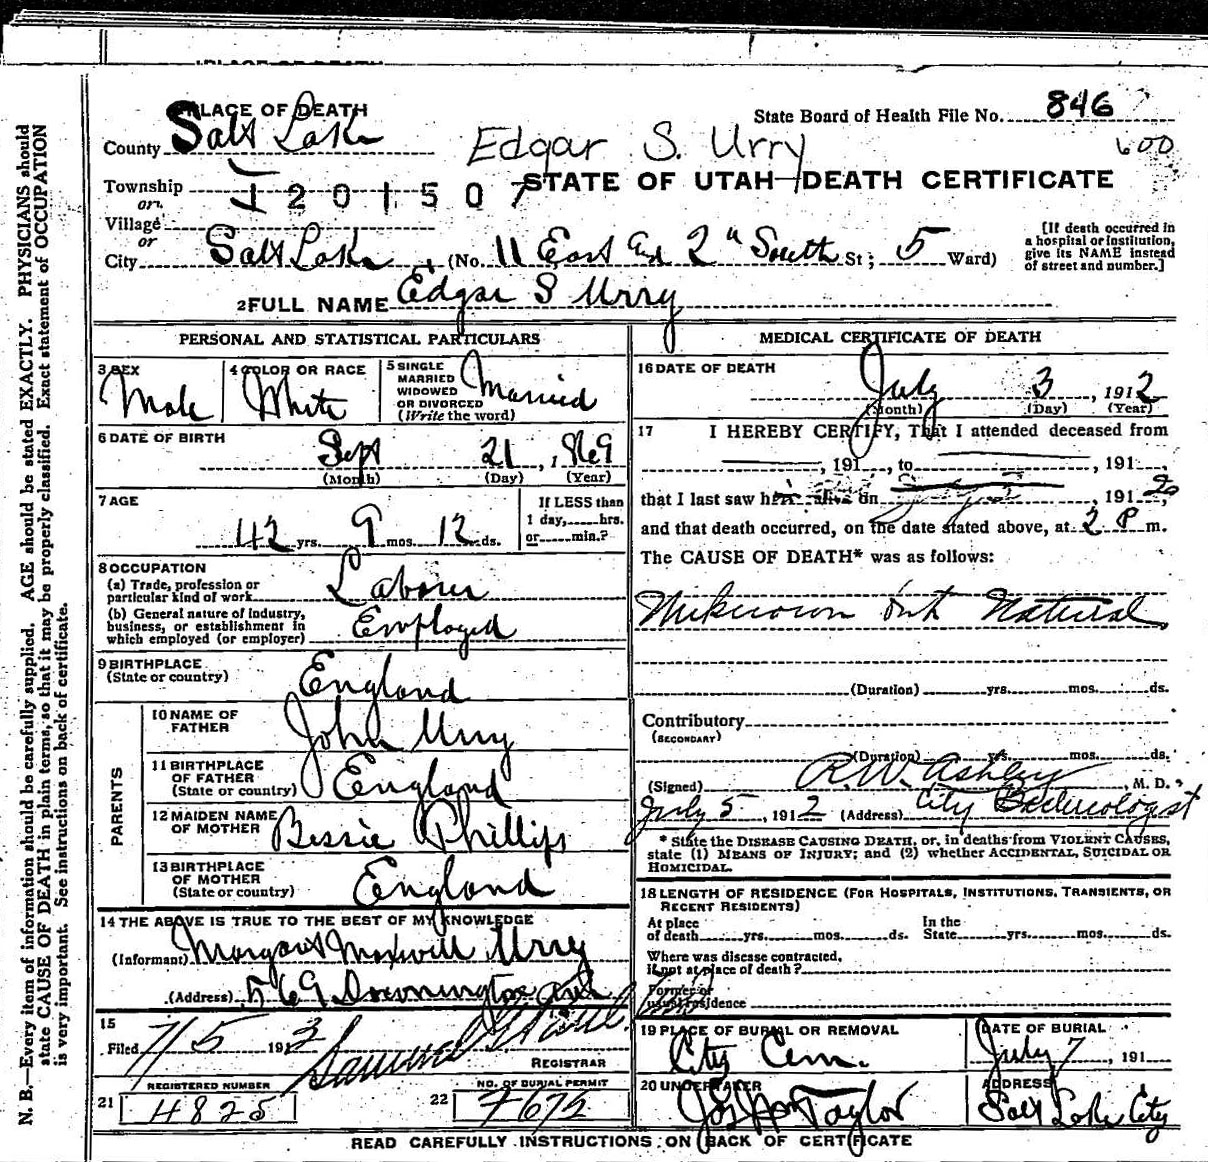 PLACE OF DEATH
County Salt Lake
State Board of Health File No. 846
600
Edgar S. Urry
Township
1201507
or
STATE OF UTAH—DEATH CERTIFICATE
Village
or
City Salt Lake, (No. 11 East 2" South St; 5 Ward)
[If death occurred in a hospital or institution, give its NAME instead of street and number.]
2 FULL NAME Edgar S Urry
PERSONAL AND STATISTICAL PARTICULARS
3 SEX Male
4 COLOR OR RACE White
5 SINGLE MARRIED WIDOWED OR DIVORCED (Write the word) Married
6 DATE OF BIRTH Sept 21, 1869
(Month) (Day) (Year)
7 AGE 42 yrs. 9 mos. 12 ds.
If LESS than 1 day, hrs. or min.?
8 OCCUPATION
(a) Trade, profession or particular kind of work Laborer
(b) General nature of industry, business, or establishment in which employed (or employer) Employed
9 BIRTHPLACE (State or country) England
PARENTS
10 NAME OF FATHER John Urry
11 BIRTHPLACE OF FATHER (State or country) England
12 MAIDEN NAME OF MOTHER Bessie Phillips
13 BIRTHPLACE OF MOTHER (State or country) England
14 THE ABOVE IS TRUE TO THE BEST OF MY KNOWLEDGE
(Informant) Margaret Maxwell Urry
(Address) 569 Downington Ave
15
Filed 7/5 1912 Samuel G. Paul
REGISTRAR
REGISTERED NUMBER
21 4825
NO. OF BURIAL PERMIT
22 7672
MEDICAL CERTIFICATE OF DEATH
16 DATE OF DEATH July 3, 1912
(Month) (Day) (Year)
17 I HEREBY CERTIFY, That I attended deceased from
, 191 , to , 191 ,
that I last saw him alive on , 1912,
and that death occurred, on the date stated above, at 2 P m.
The CAUSE OF DEATH* was as follows:
Unknown but Natural
(Duration) yrs. mos. ds.
Contributory
(SECONDARY)
(Duration) yrs. mos. ds.
(Signed) R.W. Ashley M. D.
July 5, 1912 (Address) City Bacteriologist
* State the DISEASE CAUSING DEATH, or, in deaths from VIOLENT CAUSES, state (1) MEANS OF INJURY; and (2) whether ACCIDENTAL, SUICIDAL OR HOMICIDAL.
18 LENGTH OF RESIDENCE (FOR HOSPITALS, INSTITUTIONS, TRANSIENTS, OR RECENT RESIDENTS)
At place of death yrs. mos. ds. In the State yrs. mos. ds.
Where was disease contracted, if not at place of death?
Former or usual residence
19 PLACE OF BURIAL OR REMOVAL City Cem.
DATE OF BURIAL July 7, 191
20 UNDERTAKER Jos Wm Taylor
ADDRESS Salt Lake City
READ CAREFULLY INSTRUCTIONS ON BACK OF CERTIFICATE
N. B.—Every item of information should be carefully supplied. AGE should be stated EXACTLY. PHYSICIANS should
state CAUSE OF DEATH in plain terms, so that it may be properly classified. Exact statement of OCCUPATION
is very important. See instructions on back of certificate.